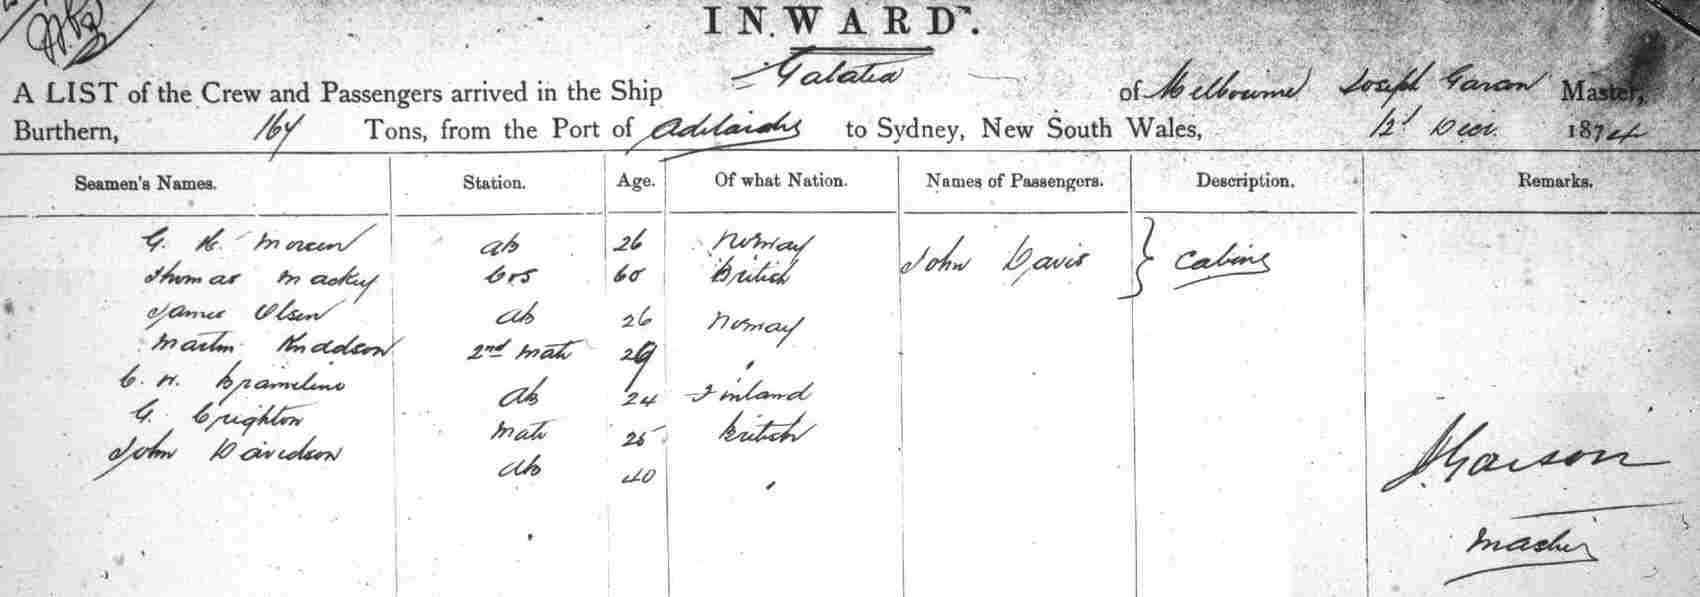 INWARD.
A LIST of the Crew and Passengers arrived in the Ship Galatea of Melbourne Joseph Garson Master,
Burthern, 164 Tons, from the Port of Adelaide to Sydney, New South Wales, 12th Decr. 1874
Seamen's Names. Station. Age. Of what Nation. Names of Passengers. Description. Remarks.
G. H. ab 26 Norway John Davis Cabins
Thomas Mackey 60 British
James Olsen ab 26 Norway
Martin Knudson 2nd Mate 29 "
C. ab 24 Finland
G. Crighton Mate 25 British
John Davidson ab 40 "
J Garson
Master